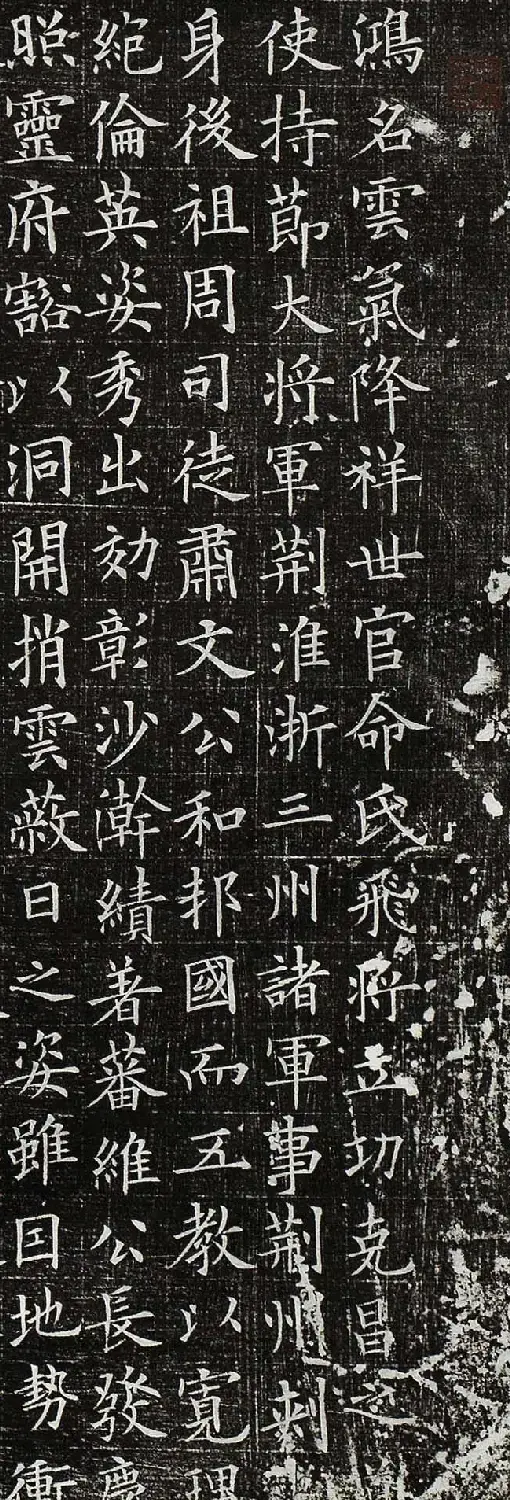 鴻名雲氣降祥世官命氏飛將立功克昌之
使持節大將軍荆淮浙三州諸軍事荆州刾
身後祖周司徒肅文公和邦國而五教以寬理
絶倫英姿秀出効彰沙澣績著蕃維公長發慶
照靈府豁以洞開捎雲蔽日之姿雖因地勢衝